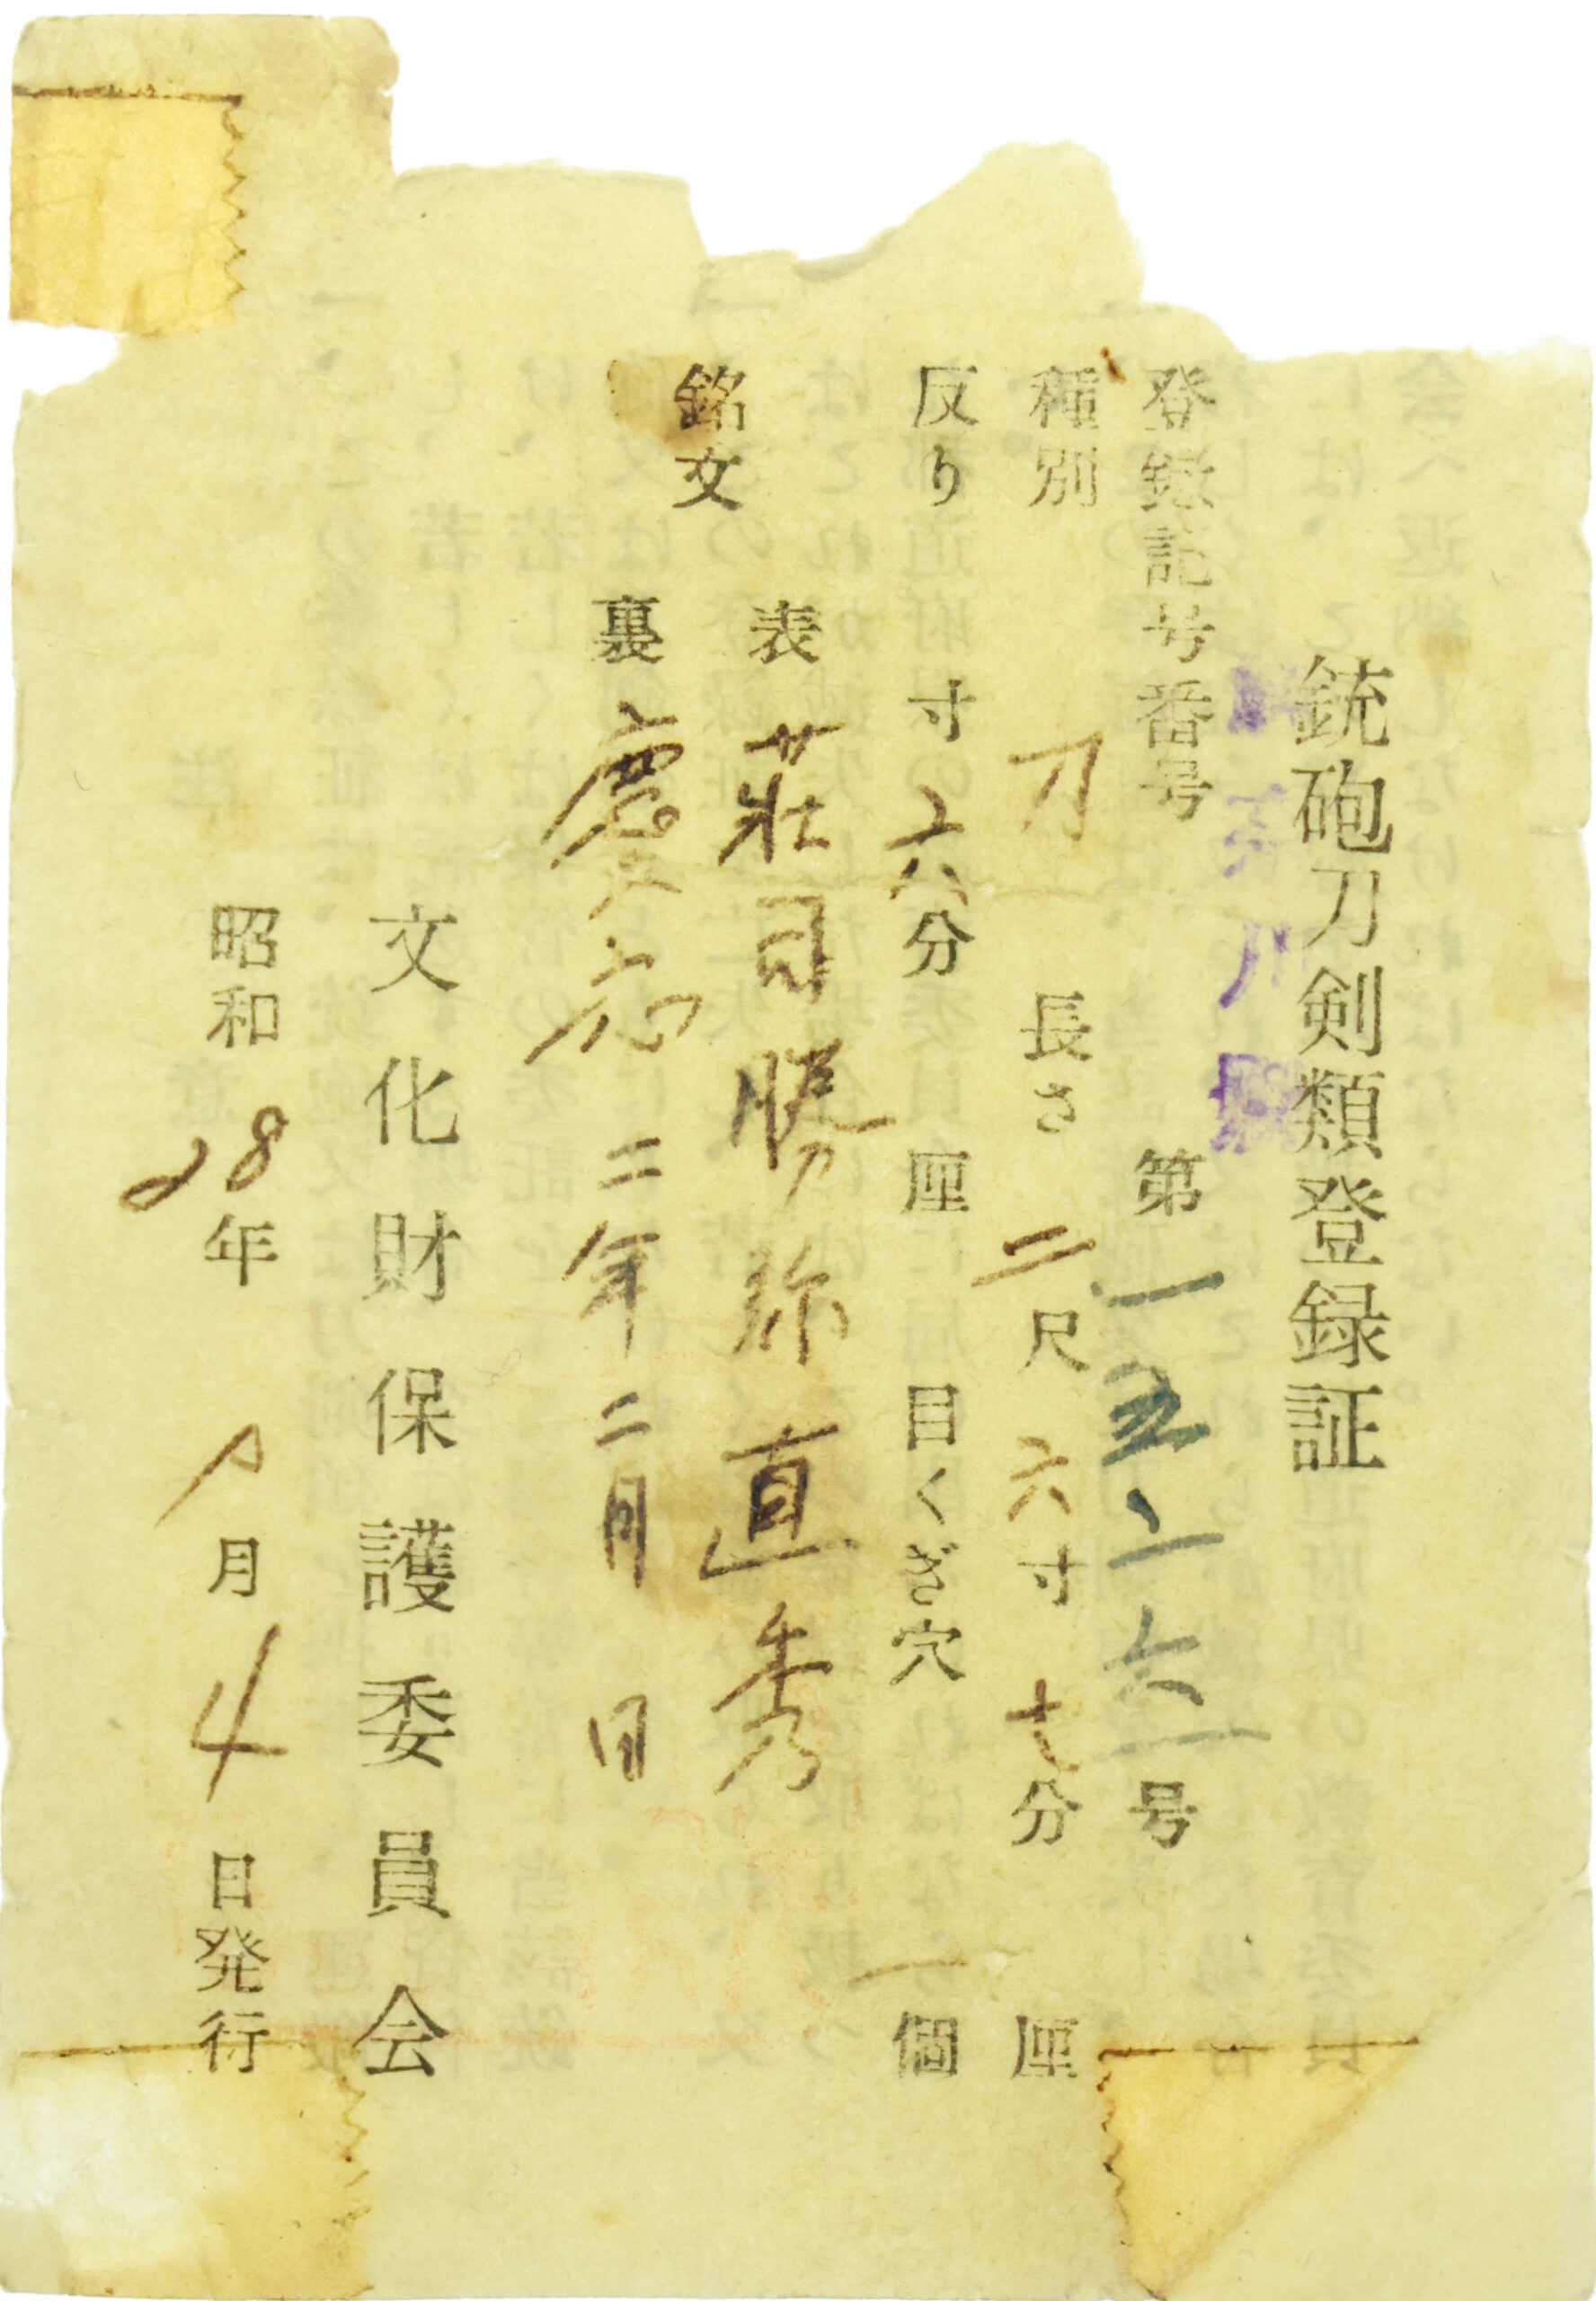 銃砲刀剣類登録証
神奈川縣
登録記号番号 第一五二六一号
種別 刀 長さ 二尺六寸七分 厘
反り 寸六分 厘 目くぎ穴 一個
銘文
表 莊司勝弥直秀
裏 慶応二年二月 日
文化財保護委員会
昭和28年 月4日発行